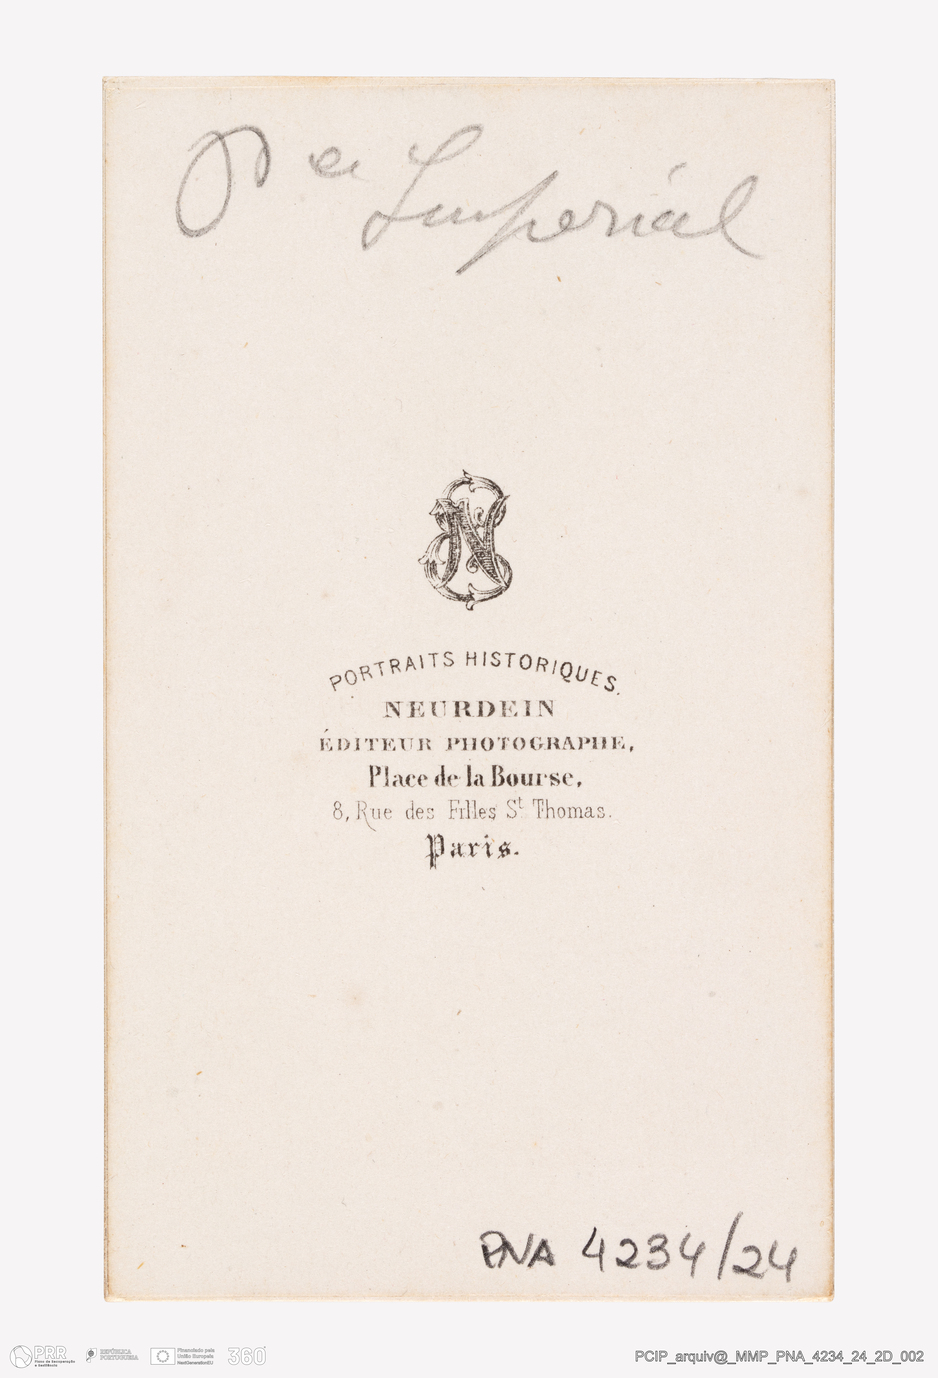 Pce Impérial
N
PORTRAITS HISTORIQUES.
NEURDEIN
ÉDITEUR PHOTOGRAPHE,
Place de la Bourse,
8, Rue des Filles St Thomas.
Paris.
PNA 4234/24
PRR
Plano de Recuperação
e Resiliência
REPÚBLICA
PORTUGUESA
Financiado pela
União Europeia
NextGenerationEU
360
PCIP_arquiv@_MMP_PNA_4234_24_2D_002